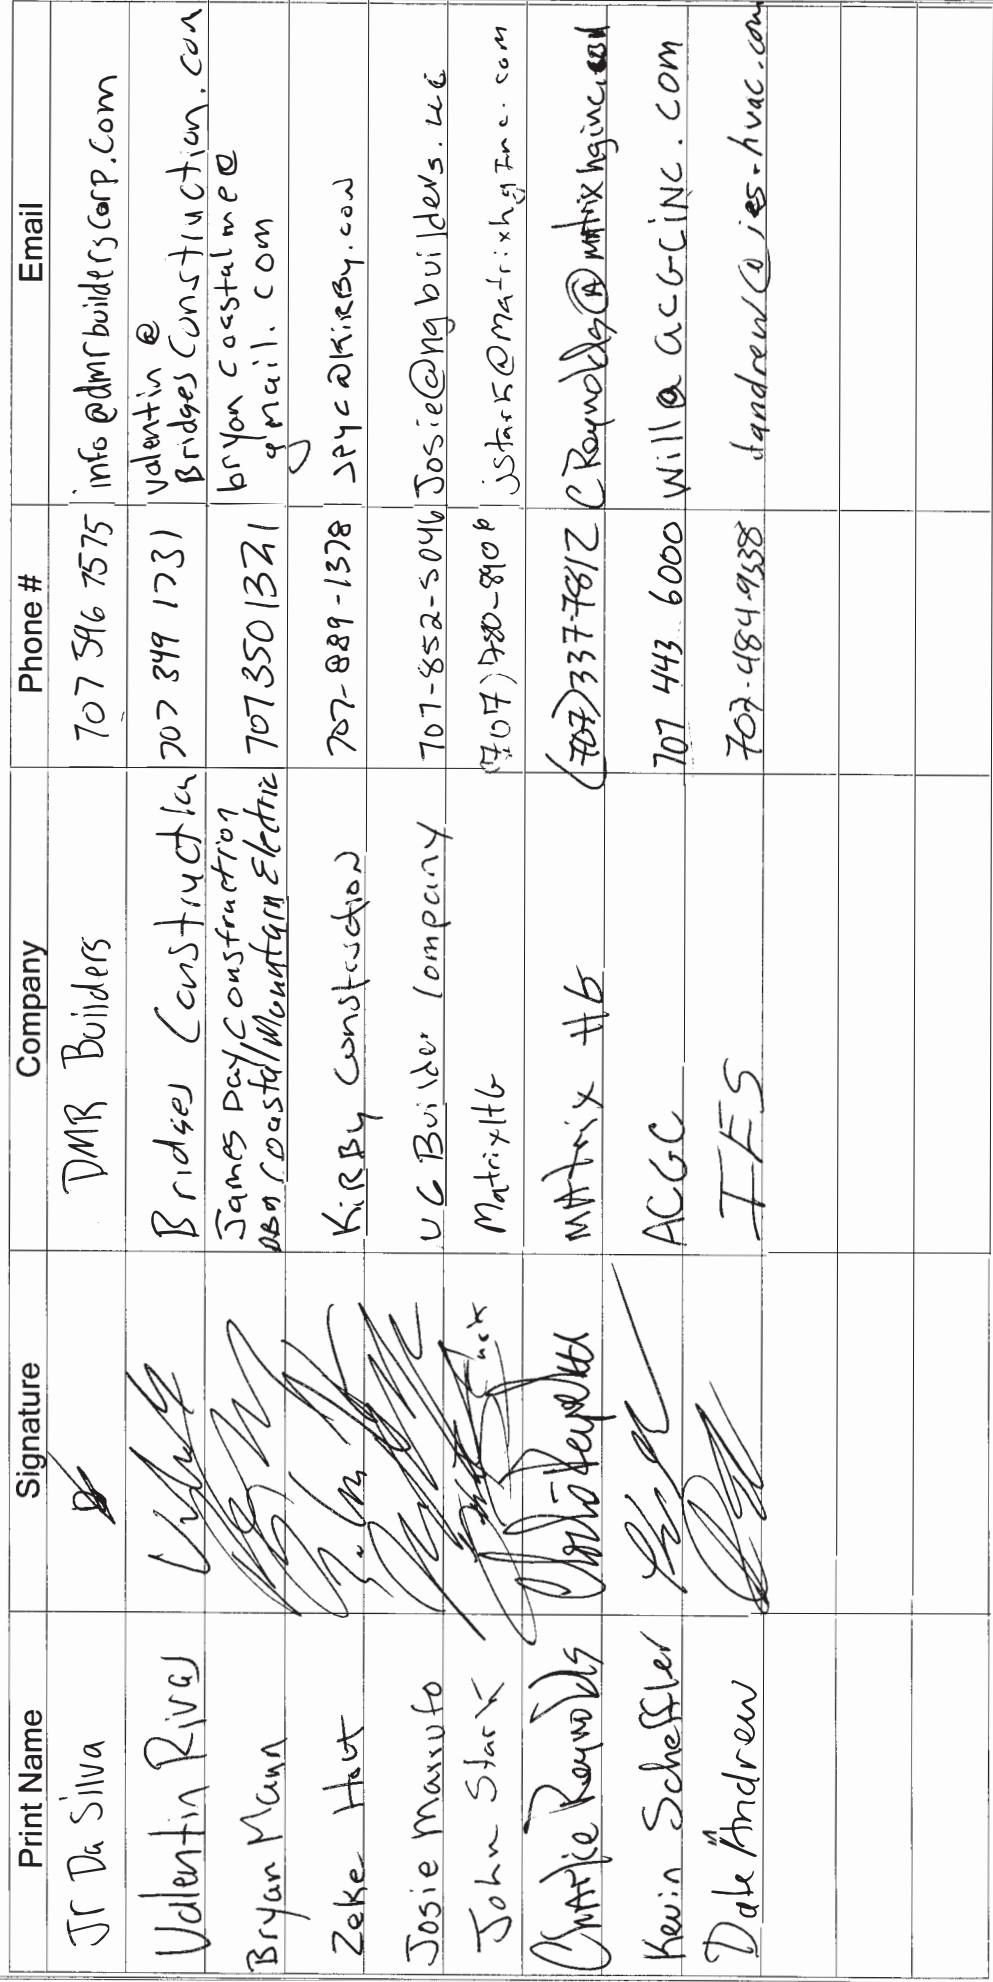 Print Name Signature Company Phone # Email
Jr Da Silva DMR Builders 707 596 7575 info@dmrbuilderscorp.com
Valentin Rivas Bridges Construction 707 349 1731 valentin@
BridgesConstruction.com
Bryan Mann James Day Construction 707 350 1321 bryan coastalme@
DBA Coastal Mountain Electric gmail.com
Zeke Hout KiRBy Construction 707-889-1378 @KiRBy.com
Josie Builder Company 707-852-5046 Josie@ngbuilders.
John Stark MatrixHG (707) jstark@matrixhgInc.com
Charlie Reynolds MAtrix HG (707)337-7812 CReynolds@MAtrixhginc.com
Kevin Scheffler ACGC 707 443 6000 will@acGCiNC.com
Andrew IES 707-484-9338 @ies-hvac.com